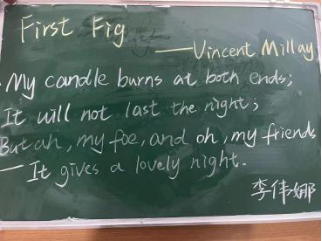 First Fig
——Vincent Millay
My candle burns at both ends;
It will not last the night;
But ah, my foe, and oh, my friends
— It gives a lovely night.
李伟娜